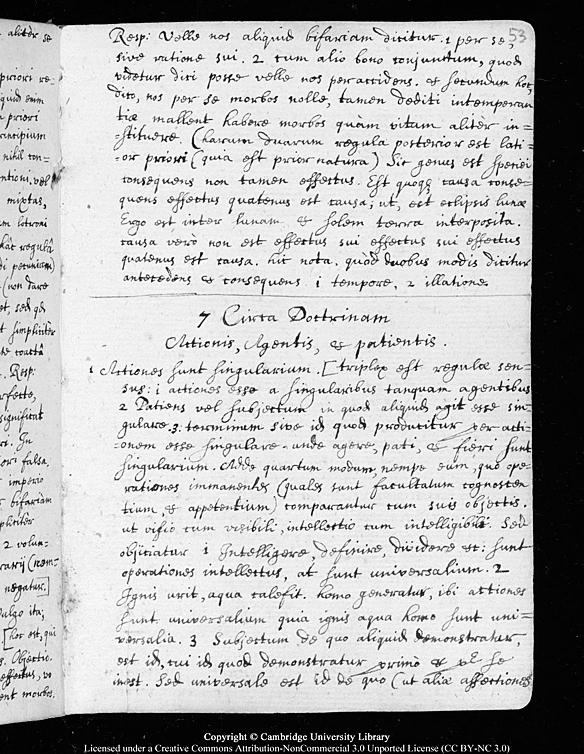 aliter se
priori re-
quid eum
a priori
principium
nihil con-
ntioni, vel
mixtas,
um latroni
hac regula
di pecuniam)
(non dare
et, sed qd
t simpliciter
te coacta
. Resp:
rfecte,
significat
ri. In
ior: falsa,
imperio
r bifariam
pliciter
2 volun-
rarij (nem-
negatur.
vulgo ita;
[hoc est, qui
s. Objectio.
effectus, vo
ent morbos.
53
Resp: Velle nos aliquid bifariam dicitur. 1 per se,
sive ratione sui. 2 cum alio bono conjunctum, quod
videtur dici posse velle nos per accidens. et secundum hoc
dito, nos per se morbos nolle, tamen dediti intemperan
tiæ mallent habere morbos quàm vitam aliter in=
stituere. (harum duarum regula posterior est lati=
=or priori (quia est prior natura) Sic genus est speciei
consequens non tamen effectus. Est quoqȝ causa conse=
quens effectus quatenus est causa; ut, est eclipsis lunæ
Ergo est inter lunam & solem terra interposita.
causa verò non est effectus sui effectus sui effectus
quatenus est causa. hic nota. quòd duobus modis dicitur
antecedens & consequens. 1 tempore, 2 illatione.
7 Circa Doctrinam
Actionis, Agentis, & patientis.
1 Actiones sunt singularium. [triplex est regulæ sen=
sus: 1 actiones esse a singularibus tanquam agentibus
2 Patiens vel subjectum in quod aliquid agit esse sin=
gulare. 3. terminum sive id quod producitur per acti=
=onem esse singulare. unde agere, pati, & fieri sunt
singularium. Adde quartum modum, nempe eum, quo ope=
rationes immanentes (quales sunt facultatum cognoscen
tium, & appetentium) comparantur cum suis objectis.
ut visio cum visibili, intellectio cum intelligibili. Sed
objiciatur 1 Intelligere, definire, dividere &c: sunt
operationes intellectus, at sunt universalium. 2
Ignis urit, aqua calefit. homo generatur, ibi actiones
sunt universalium quia ignis aqua homo sunt uni=
versalia. 3 Subjectum de quo aliquid demonstratur,
est id, cui id quod demonstratur primo & per se
inest. Sed universale est id de quo (ut aliæ affectiones
Copyright © Cambridge University Library
Licensed under a Creative Commons Attribution-NonCommercial 3.0 Unported License (CC BY-NC 3.0)